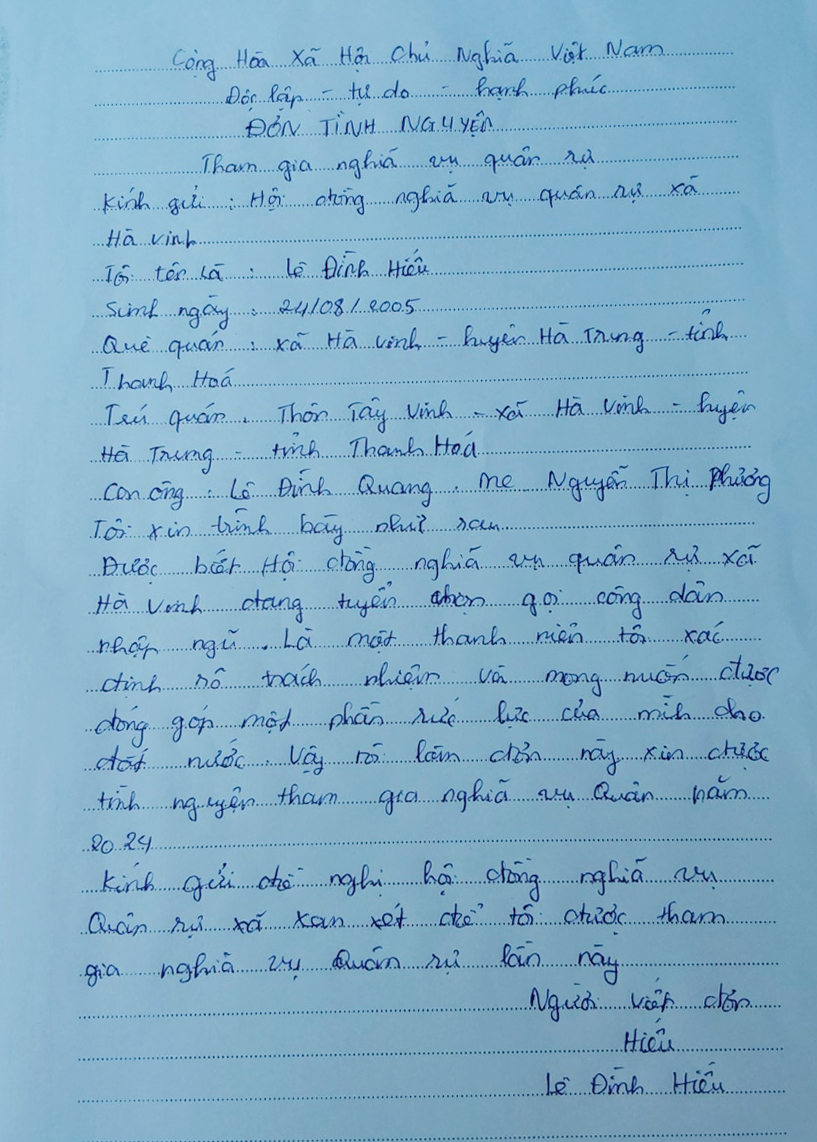 Cộng Hòa Xã Hội Chủ Nghĩa Việt Nam
Độc lập - tự do - hạnh phúc
ĐƠN TÌNH NGUYỆN
Tham gia nghĩa vụ quân sự
Kính gửi : Hội đồng nghĩa vụ quân sự xã
Hà vinh
Tôi tên là : Lê Đình Hiếu
Sinh ngày : 24/08/2005
Quê quán : xã Hà Vinh - huyện Hà Trung - tỉnh
Thanh Hoá
Trú quán . Thôn Tây Vinh - xã Hà Vinh - huyện
Hà Trung - tỉnh Thanh Hoá
Con ông : Lê Đình Quang . Mẹ Nguyễn Thị Phương
Tôi xin trình bày như sau
Được biết Hội đồng nghĩa vụ quân sự xã
Hà Vinh đang tuyển chọn gọi công dân
nhập ngũ . Là một thanh niên tôi xác
định rõ trách nhiệm và mong muốn được
đóng góp một phần sức lực của mình cho
đất nước . Vậy tôi làm đơn này xin được
tình nguyện tham gia nghĩa vụ Quân năm
2024
Kính gửi đề nghị hội đồng nghĩa vụ
Quân sự xã xem xét để tôi được tham
gia nghĩa vụ Quân sự lần này
Người viết đơn
Hiếu
Lê Đình Hiếu